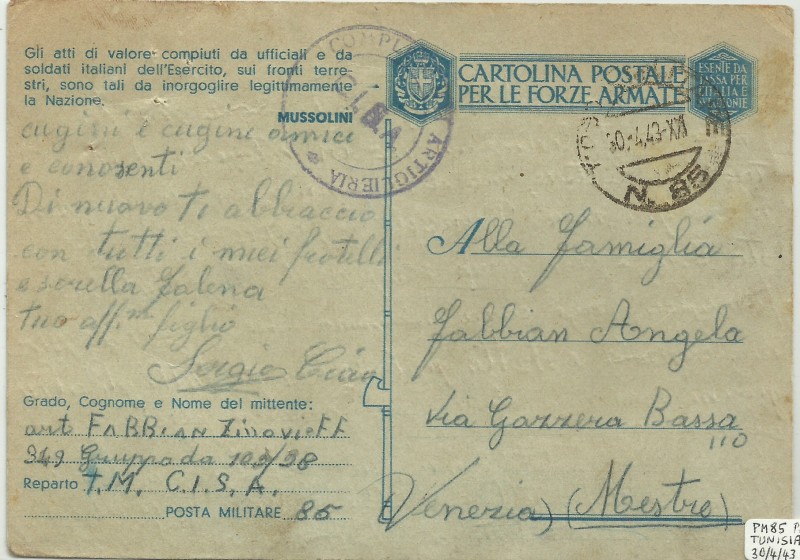 Gli atti di valore compiuti da ufficiali e da
soldati italiani dell'Esercito, sui fronti terre-
stri, sono tali da inorgoglire legittimamente
la Nazione.
MUSSOLINI
cugini e cugine amici
e conosenti
Di nuovo ti abbraccio
con tutti i miei fratelli
e sorella
tuo aff.mo figlio
Sergio Ciao
Grado, Cognome e Nome del mittente:
art. FABBIAN
349
Reparto T.M. C.I.S.A.
POSTA MILITARE 85
ARTIGLIERIA
CARTOLINA POSTALE
PER LE FORZE ARMATE
ESENTE DA
TASSA PER
L'ITALIA E
COLONIE
30.4.43-XXI
N. 85
Alla Famiglia
Fabbian Angela
Via Gazzera Bassa
110
Venezia) (Mestre)
PM85
TUNISIA
30/4/43